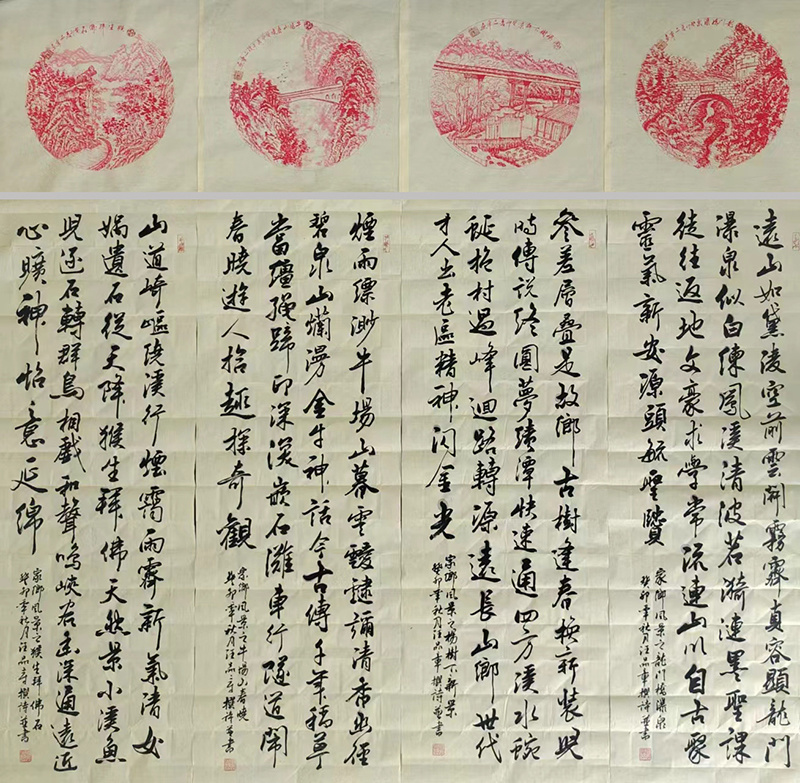 遠山如黛淩空前雲開霧霽真容顯龍門
瀑泉似白練鳳溪清波若漪漣墨聖課
徒往返地文豪求學常流連山川自古聚
靈氣新安源頭毓聖賢
家鄉風景之龍門橋瀑泉
癸卯年秋月汪品章撰詩並書
參差層疊是故鄉古樹逢春換新裝兒
時傳說終圓夢積潭快速通四方溪水蜿
蜒格村過峰迴路轉源遠長山鄉世代
才人出老區精神閃金光
家鄉風景之楊樹下新景
癸卯年秋月汪品章撰詩並書
煙雨縹渺牛場山暮雲靉靆彌清香幽徑
碧泉山爛漫金牛神話今古傳千年草
當韁繩蹄印深淺嵌石灘車行隧道開
春曉遊人拾趣探奇觀
家鄉風景之牛場山春曉
癸卯年秋月汪品章撰詩並書
山道崎嶇繞溪行煙靄雨霽新氣清女
媧遺石從天降猴生拜佛天然景小溪魚
兒逐石轉群鳥相戲和聲鳴峽谷幽深通遠近
心曠神怡意延綿
家鄉風景之猴生拜佛石
癸卯年秋月汪品章撰詩並書